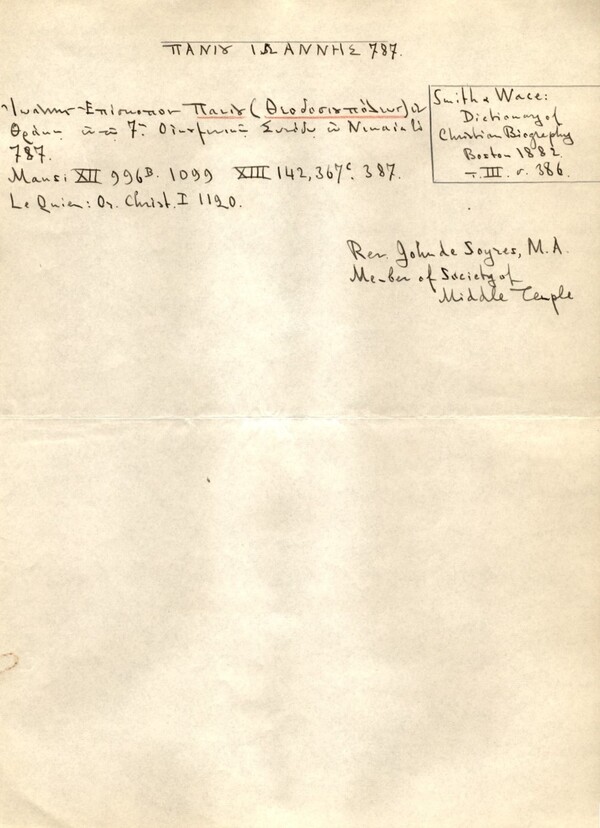 ΠΑΝΙΟΥ ΙΩΑΝΝΗΣ 787.
Ἰωάννης Ἐπίσκοπος Πανίου (Θεοδοσιουπόλεως) ἐν
Θρᾴκῃ 7ῃ Οἰκουμενικῇ Συνόδῳ Νικαίᾳ
787.
Mansi XII 996B. 1099 XIII 142, 367c. 387.
Le Quien: Or. Christ. I 1120.
Smith & Wace:
Dictionary of
Christian Biography
Boston 1882
T. III. σ. 386.
Rev. John de Soyres, M.A.
Member of Society of
Middle Temple